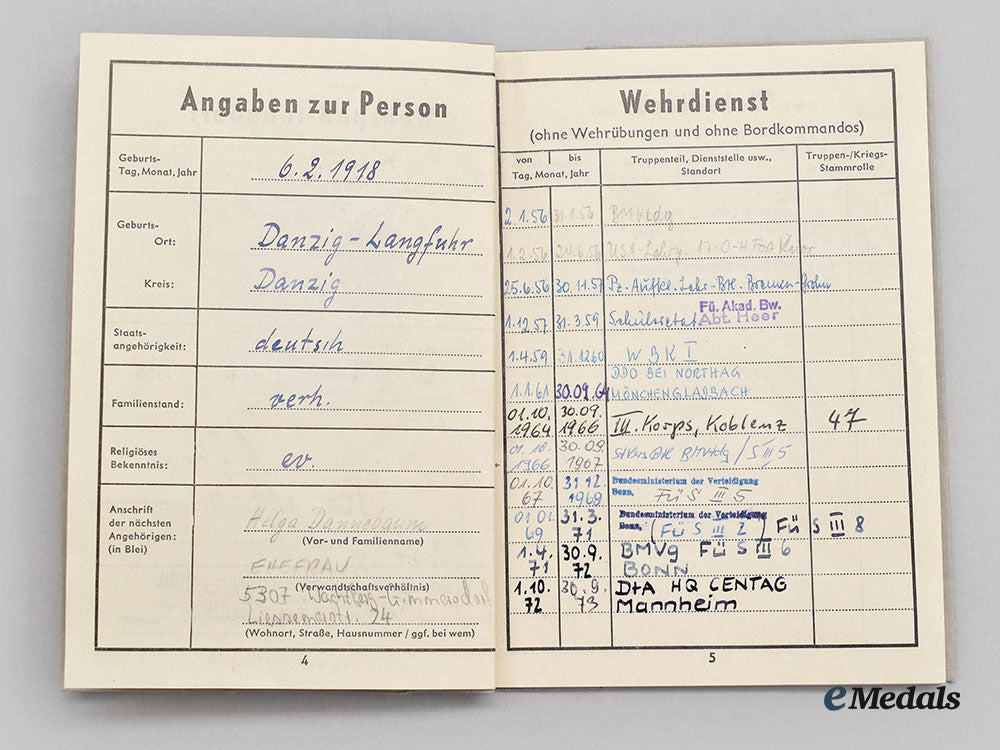 Angaben zur Person
Geburts-
Tag, Monat, Jahr
6.2.1918
Geburts-
Ort:
Danzig-Langfuhr
Kreis:
Danzig
Staats-
angehörigkeit:
deutsch
Familienstand:
verh.
Religiöses
Bekenntnis:
ev.
Anschrift
der nächsten
Angehörigen:
(in Blei)
Helga
(Vor- und Familienname)
EHEFRAU
(Verwandtschaftsverhältnis)
5307
24
(Wohnort, Straße, Hausnummer / ggf. bei wem)
4
Wehrdienst
(ohne Wehrübungen und ohne Bordkommandos)
von bis
Tag, Monat, Jahr
Truppenteil, Dienststelle usw.,
Standort
Truppen-/Kriegs-
Stammrolle
2.1.56 31.1.56 BMVtdg
1.2.56 24.6.56
25.6.56 30.11.57 Pz.-Aufkl.-Lehr-Btl.
Fü. Akad. Bw.
1.12.57 31.3.59 Abt. Heer
1.4.59 31.1260 WBK I
DDO BEI NORTHAG
1.1.61 30.09.64 MÖNCHENGLADBACH
01.10. 30.09.
1964 1966 III. Korps, Koblenz 47
01.10. 30.09.
1966 1967 BMVtdg / S III 5
01.10. 31.12. Bundesministerium der Verteidigung
67 1969 Bonn, Fü S III 5
01 01. 31.3. Bundesministerium der Verteidigung
69 71 Bonn, (Fü S III 2) Fü S III 8
1.4. 30.9. BMVg Fü S III 6
71 72 BONN
1.10. 30.9. DtA HQ CENTAG
72 73 Mannheim
5
eMedals